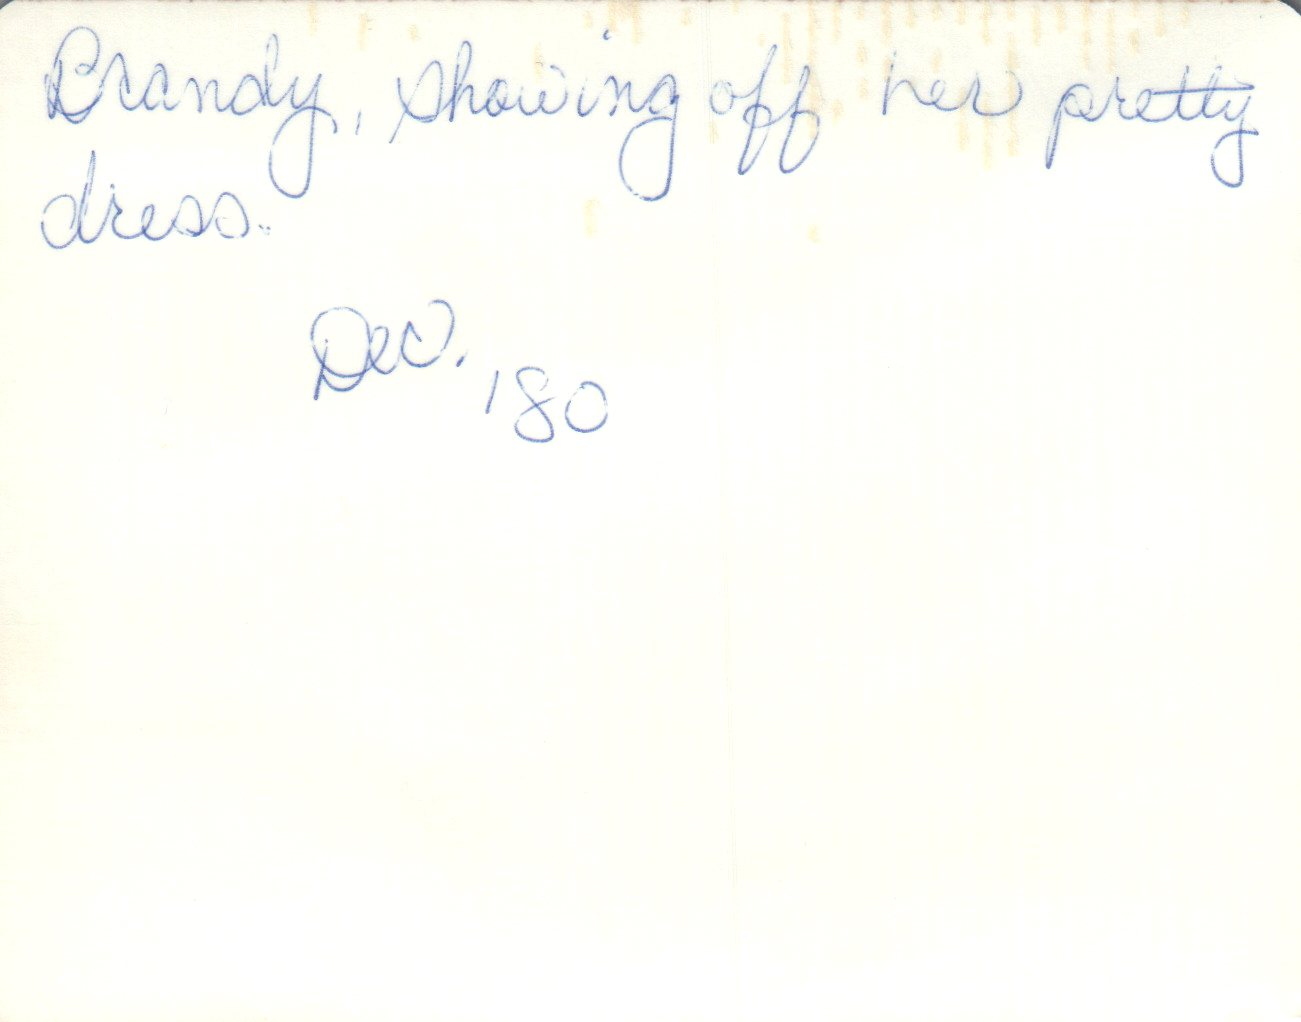 Brandy, showing off her pretty
dress.
Dec. '80